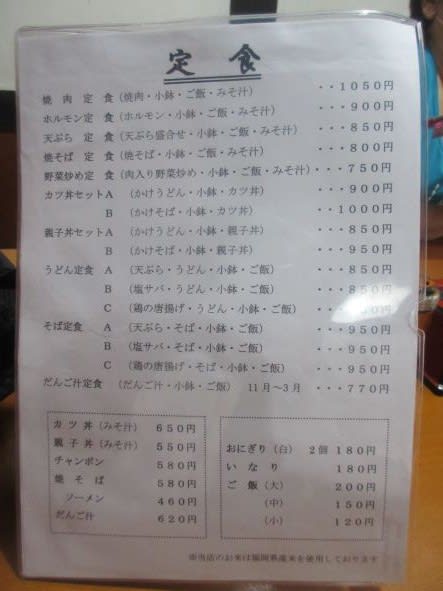 定 食
焼 肉 定 食 (焼肉・小鉢・ご飯・みそ汁) ・・1050円
ホルモン 定 食 (ホルモン・小鉢・ご飯・みそ汁) ・・・900円
天ぷら 定 食 (天ぷら盛合せ・小鉢・ご飯・みそ汁) ・・・850円
焼そば 定 食 (焼そば・小鉢・ご飯・みそ汁) ・・・800円
野菜炒め 定 食 (肉入り野菜炒め・小鉢・ご飯・みそ汁) ・・・750円
カツ丼セットA (かけうどん・小鉢・カツ丼) ・・・900円
B (かけそば・小鉢・カツ丼) ・・1000円
親子丼セットA (かけうどん・小鉢・親子丼) ・・・850円
B (かけそば・小鉢・親子丼) ・・・950円
うどん定食 A (天ぷら・うどん・小鉢・ご飯) ・・・850円
B (塩サバ・うどん・小鉢・ご飯) ・・・850円
C (鶏の唐揚げ・うどん・小鉢・ご飯) ・・・850円
そば定食 A (天ぷら・そば・小鉢・ご飯) ・・・950円
B (塩サバ・そば・小鉢・ご飯) ・・・950円
C (鶏の唐揚げ・そば・小鉢・ご飯) ・・・950円
だんご汁定食 (だんご汁・小鉢・ご飯) 11月〜3月 ・・・770円
カツ 丼 (みそ汁) 650円
親子 丼 (みそ汁) 550円
チャンポン 580円
焼 そ ば 580円
ソーメン 460円
だんご汁 620円
おにぎり (白) 2個 180円
い な り 180円
ご 飯 (大) 200円
(中) 150円
(小) 120円
※当店のお米は福岡県産米を使用しております